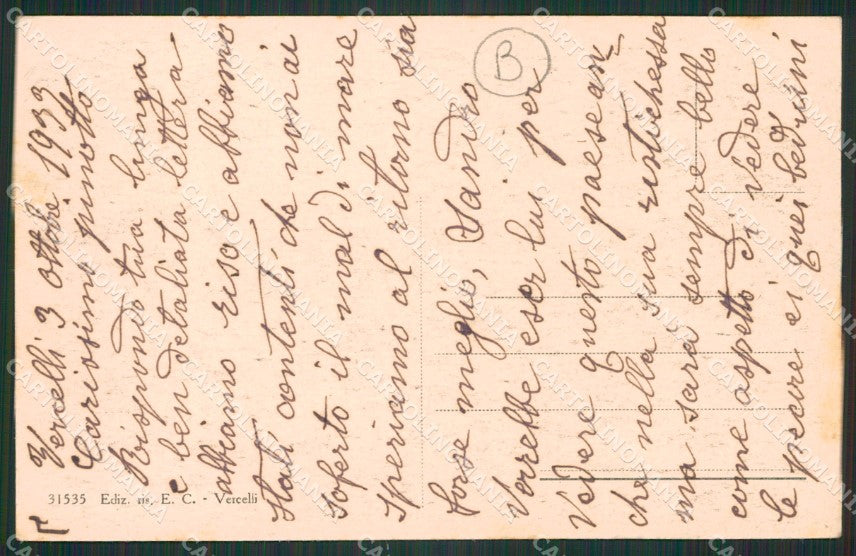 Vercelli 3 ottobre 1933
Carissimo pinotto
Rispondo tua lunga
e ben detaliata lettera
abbiamo riso e abbiamo
stati contenti che non ai
soferto il mal di mare
speriamo al ritorno sia
forse meglio, Sandro
Vorrebbe eser lui per
vedere questo paese an
che nella sua rusti chessa
ma sarà sempre bello
come aspetto di vedere
le pecore ei quei beduini
B
31535 Ediz. ris. E. C. - Vercelli
CARTOLINOMANIA